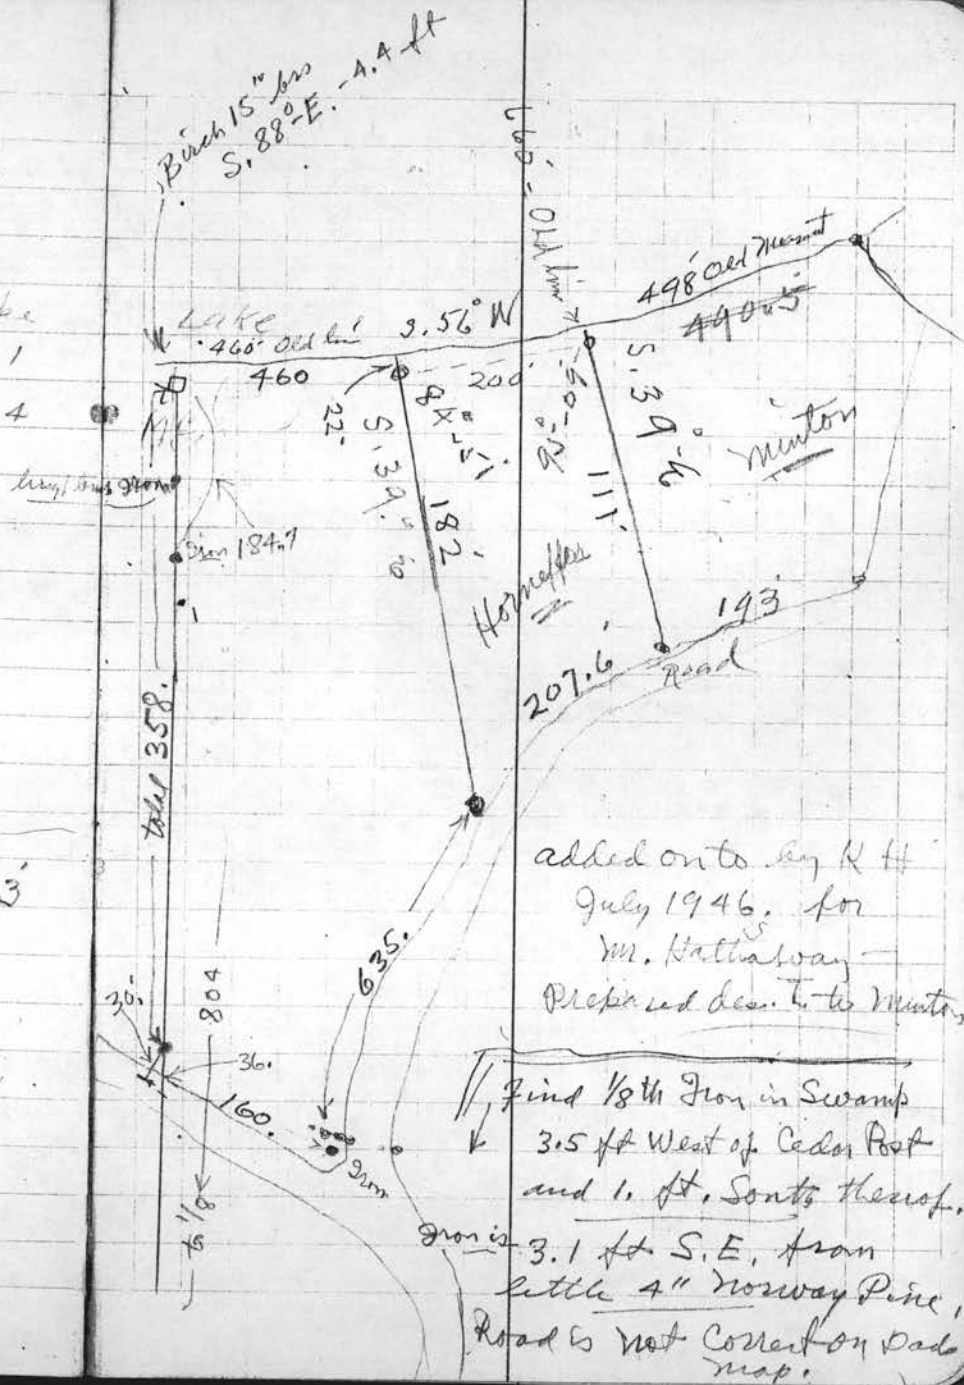 Birch 15"
S. 88°-E. -4.4 ft
660' - Old line
498' Old
490.5
Lake
460' Old
S. 56° W
460
200'
22'
S. 39.°
182'
111'
S. 39°
Minton
Iron
Iron 184.7
1
Horneffer
193'
207.6'
Road
total 358.
635.
804
30.
36.
160.
Iron
1/8
added onto by K H
July 1946. for
Mr. Hathaway
Prepared des. to Minton
Find 1/8th Iron in Swamp
3.5 ft West of Cedar Post
and 1. ft. South thereof.
Iron is 3.1 ft S.E. from
little 4" Norway Pine,
Road is not Correct on Dads
map.